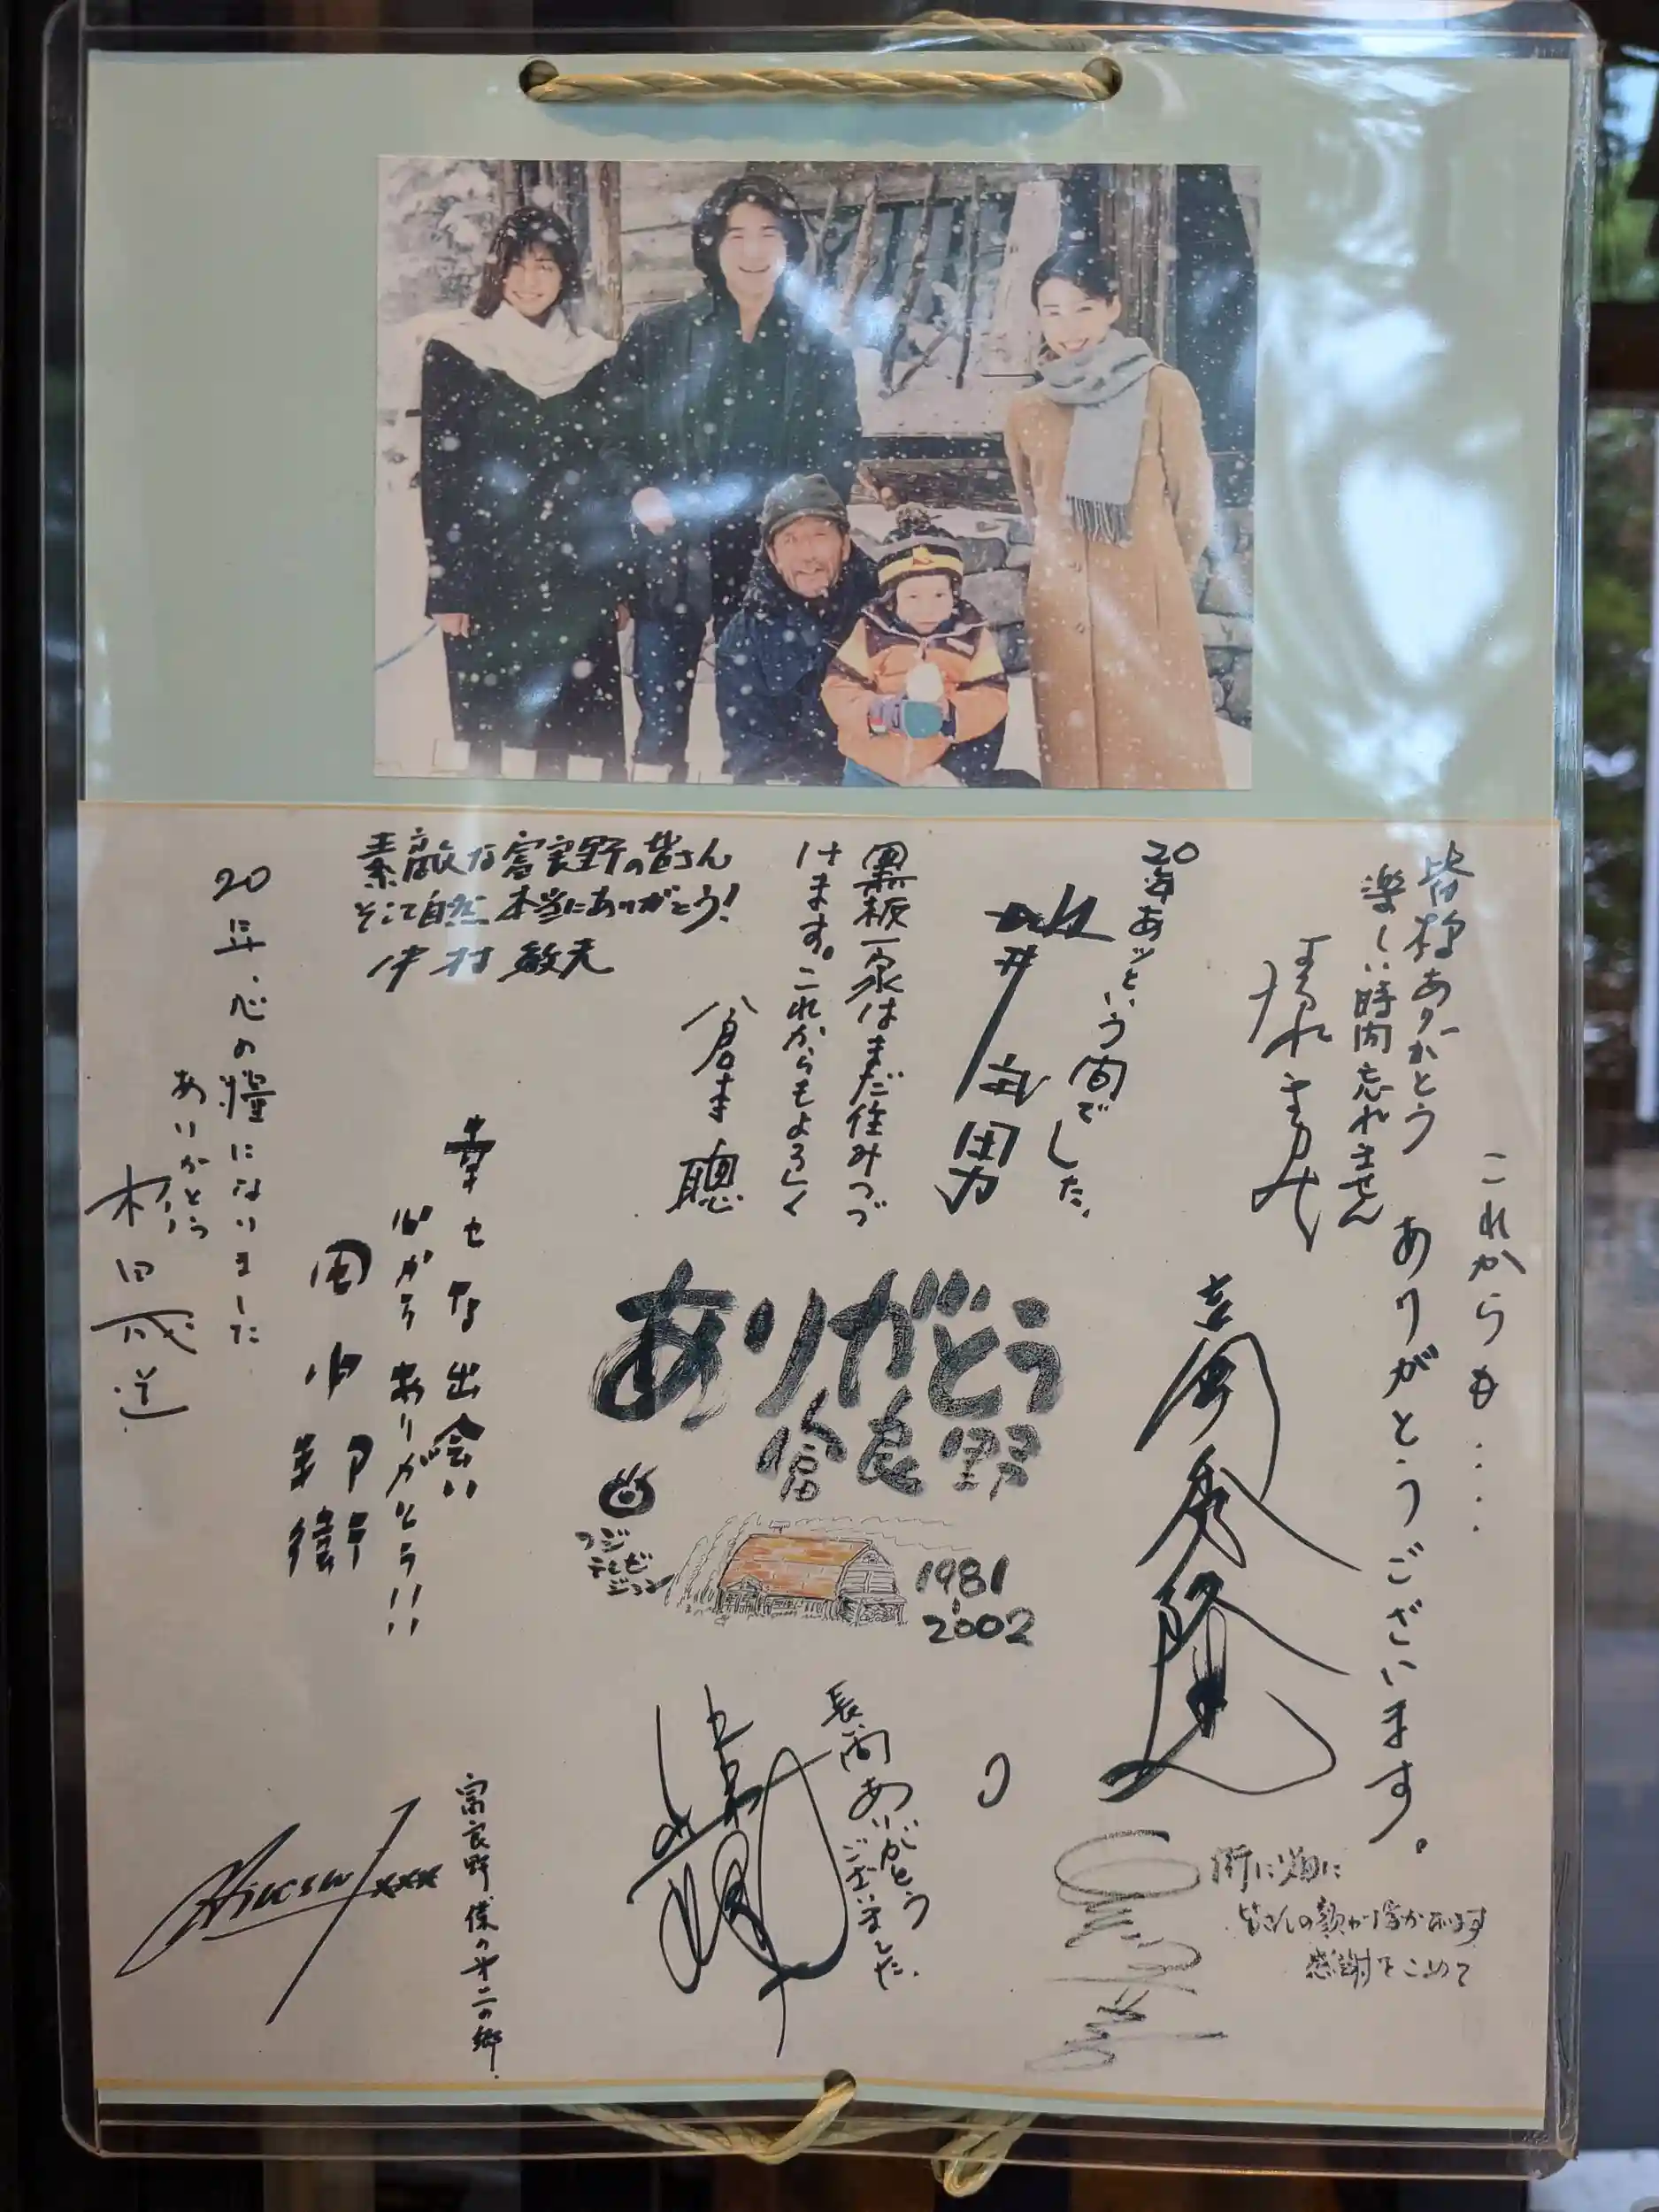 これからも・・・・
ありがとうございます。
吉岡秀隆
皆様ありがとう
楽しい時間忘れません
20年あッという間でした。
地井武男
黒板一家はまだ住みつづ
けます。これからもよろしく
倉本 聰
素敵な富良野の皆さん
そして自然 本当にありがとう!
中村 敏夫
20年、心の糧になりました
ありがとう
杉田成道
幸せな出会い
心からありがとう!!
田中邦衛
ありがとう
富良野
フジ
テレビ
ジョン
1981
2002
街に畑に
皆さんの顔が浮かびます
感謝をこめて
長い間ありがとう
ございました。
富良野 僕の第二の郷